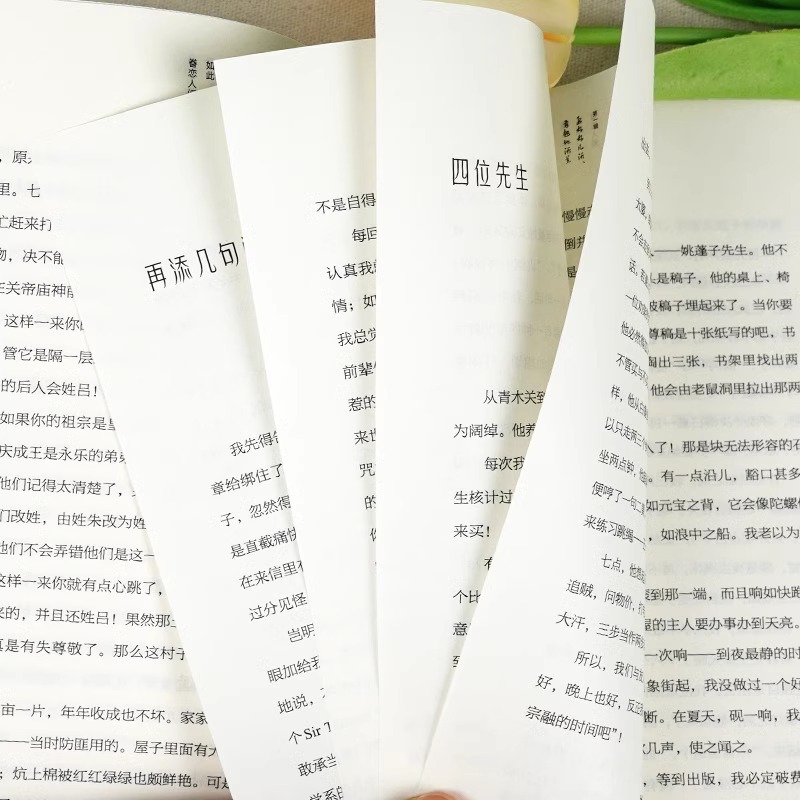 如此
眷恋人
，原
里。七
忙赶来打
物，决不能
在关帝庙神
这样一来你
管它是隔一层
的后人会姓吕！
如果你的祖宗是
庆成王是永乐的弟弟
他们记得太清楚了，
们改姓，由姓朱改为姓
他们不会弄错他们是这一
这样一来你就有点心跳了，
来的，并且还姓吕！果然那
真是有失尊敬了。那么这村子
亩一片，年年收成也不坏。家家
——当时防匪用的。屋子里面有
；炕上棉被红红绿绿也颇鲜艳。可是
再添几句
我先得
章给绑住了
子，忽然得
是直截痛快
在来信里有
过分见怪
岂明
眼加给我
地说，
个 Sir T
敢承当
学系的
不是自得
每回
认真我
情；如
我总觉
前辈
惹的
来世
咒
的
你
四位先生
从青木关到
为阔绰。他养
每次我
生核计过
来买！
有
个比
意
到
第一辑
慢慢
倒
是
太阳
不会
话，
一位
他必然
不管买与不
样，他从白
以只走两三个
坐两点钟，他
便哼了一句二
来练习跳绳——
七点，他想
追贼，问物价，
大汗，三步当作两
所以，我们与
好，晚上也好，反正
宗融的时间吧”！
——姚蓬子先生。他不
是稿子，他的桌上、椅
被稿子埋起来了。当你要
尊稿是十张纸写的吧，书
掏出三张，书架里找出两
他会由老鼠洞里拉出那两
人了！那是块无法形容的石
。有一点沿儿，豁口甚多
如元宝之背，它会像陀螺
，如浪中之船。我老以为
滚到那一端，而且响如快跑
屋的主人要办事办到天亮。
一次响——到夜最静的时
象街起，我没做过一个好
断。在夏天，砚一响，我
几声，使之闻之。
，等到出版，我必定破费